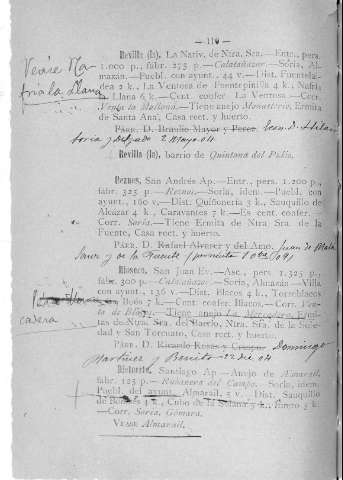 — 110 —
Revilla (la), La Nativ. de Ntra. Sra.—Entr., pers.
1.000 p., fábr. 275 p.—Calatañazor.—Soria, Al-
mazán.—Puebl. con ayunt., 44 v.—Dist. Fuentelal-
dea 2 k., La Ventosa de Fuentepinilla 4 k., Nafría
Llana 6 k.—Cent. confer. La Ventosa.—Corr.
Venta la Mallona.—Tiene anejo Monasterio, Ermita
de Santa Ana, Casa rect. y huerto.
Véase Na
fria la Llana
Párr. D. Braulio Mayor y Perez.
Soria y delgado 2 Mayo 04
Revilla (la), barrio de Quintana del Pidio.
Reznos, San Andrés Ap.—Entr., pers. 1.200 p.,
fábr. 325 p.—Reznos.—Soria, idem.—Puebl. con
ayunt., 160 v.—Dist. Quiñonería 3 k., Sauquillo de
Alcázar 4 k., Caravantes 7 k.—Es cent. confer.—
Corr. Soria.—Tiene Ermita de Ntra. Sra. de la
Fuente, Casa rect. y huerto.
Párr. D. Rafael Alvarez y del Amo. Juan de Mata
Rioseco, San Juan Ev.—Asc., pers. 1.325 p.,
fábr. 300 p.—Calatañazor.—Soria, Almazán.—Villa
con ayunt., 136 v.—Dist. Blacos 4 k., Torreblacos
k., Boós 7 k.—Cent. confer. Blacos.—Corr. Ven-
ta de Blacos.—Tiene anejo La Mercadera, Ermi-
tas de Ntra. Sra. del Barrio, Ntra. Sra. de la Sole-
dad y San Torcuato, Casa rect. y huerto.
cadera
Párr. D. Ricardo Rosas y Crespo. Domingo
Martinez y Benito 22 dic 04
Ristorto, Santiago Ap.—Anejo de Almarail,
fábr. 125 p.—Rabanera del Campo.—Soria, idem.
Puebl. del ayunt. Almarail, 5 v.—Dist. Sauquillo
de Boñices 4 k., Cubo de la Solana 3 k., Tardo 3 k.
—Corr. Soria, Gómara.
Véase Almarail.